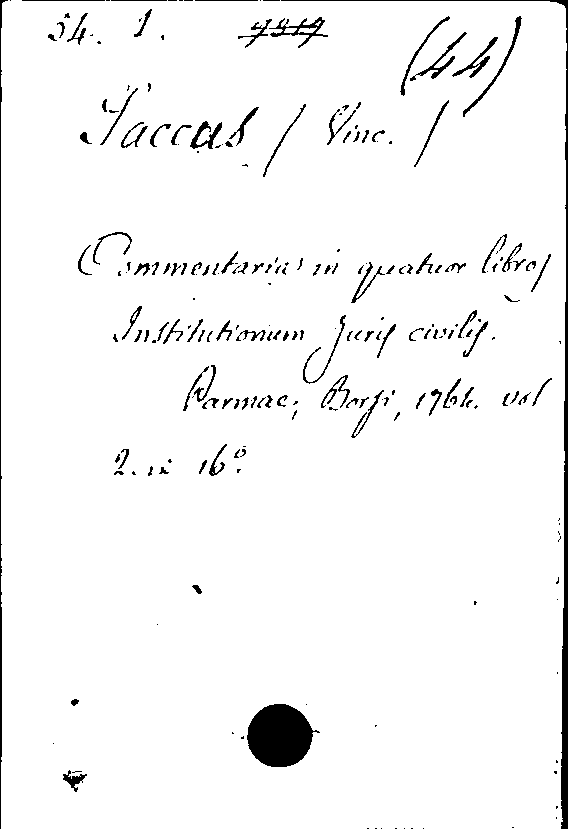 54. 1. 7819 (44)
Saccus / Vinc. /
Commentarius in quatuor libros
Institutionum Juris civilis.
Parmae, Borsi, 1764. vol
2. in 16º.